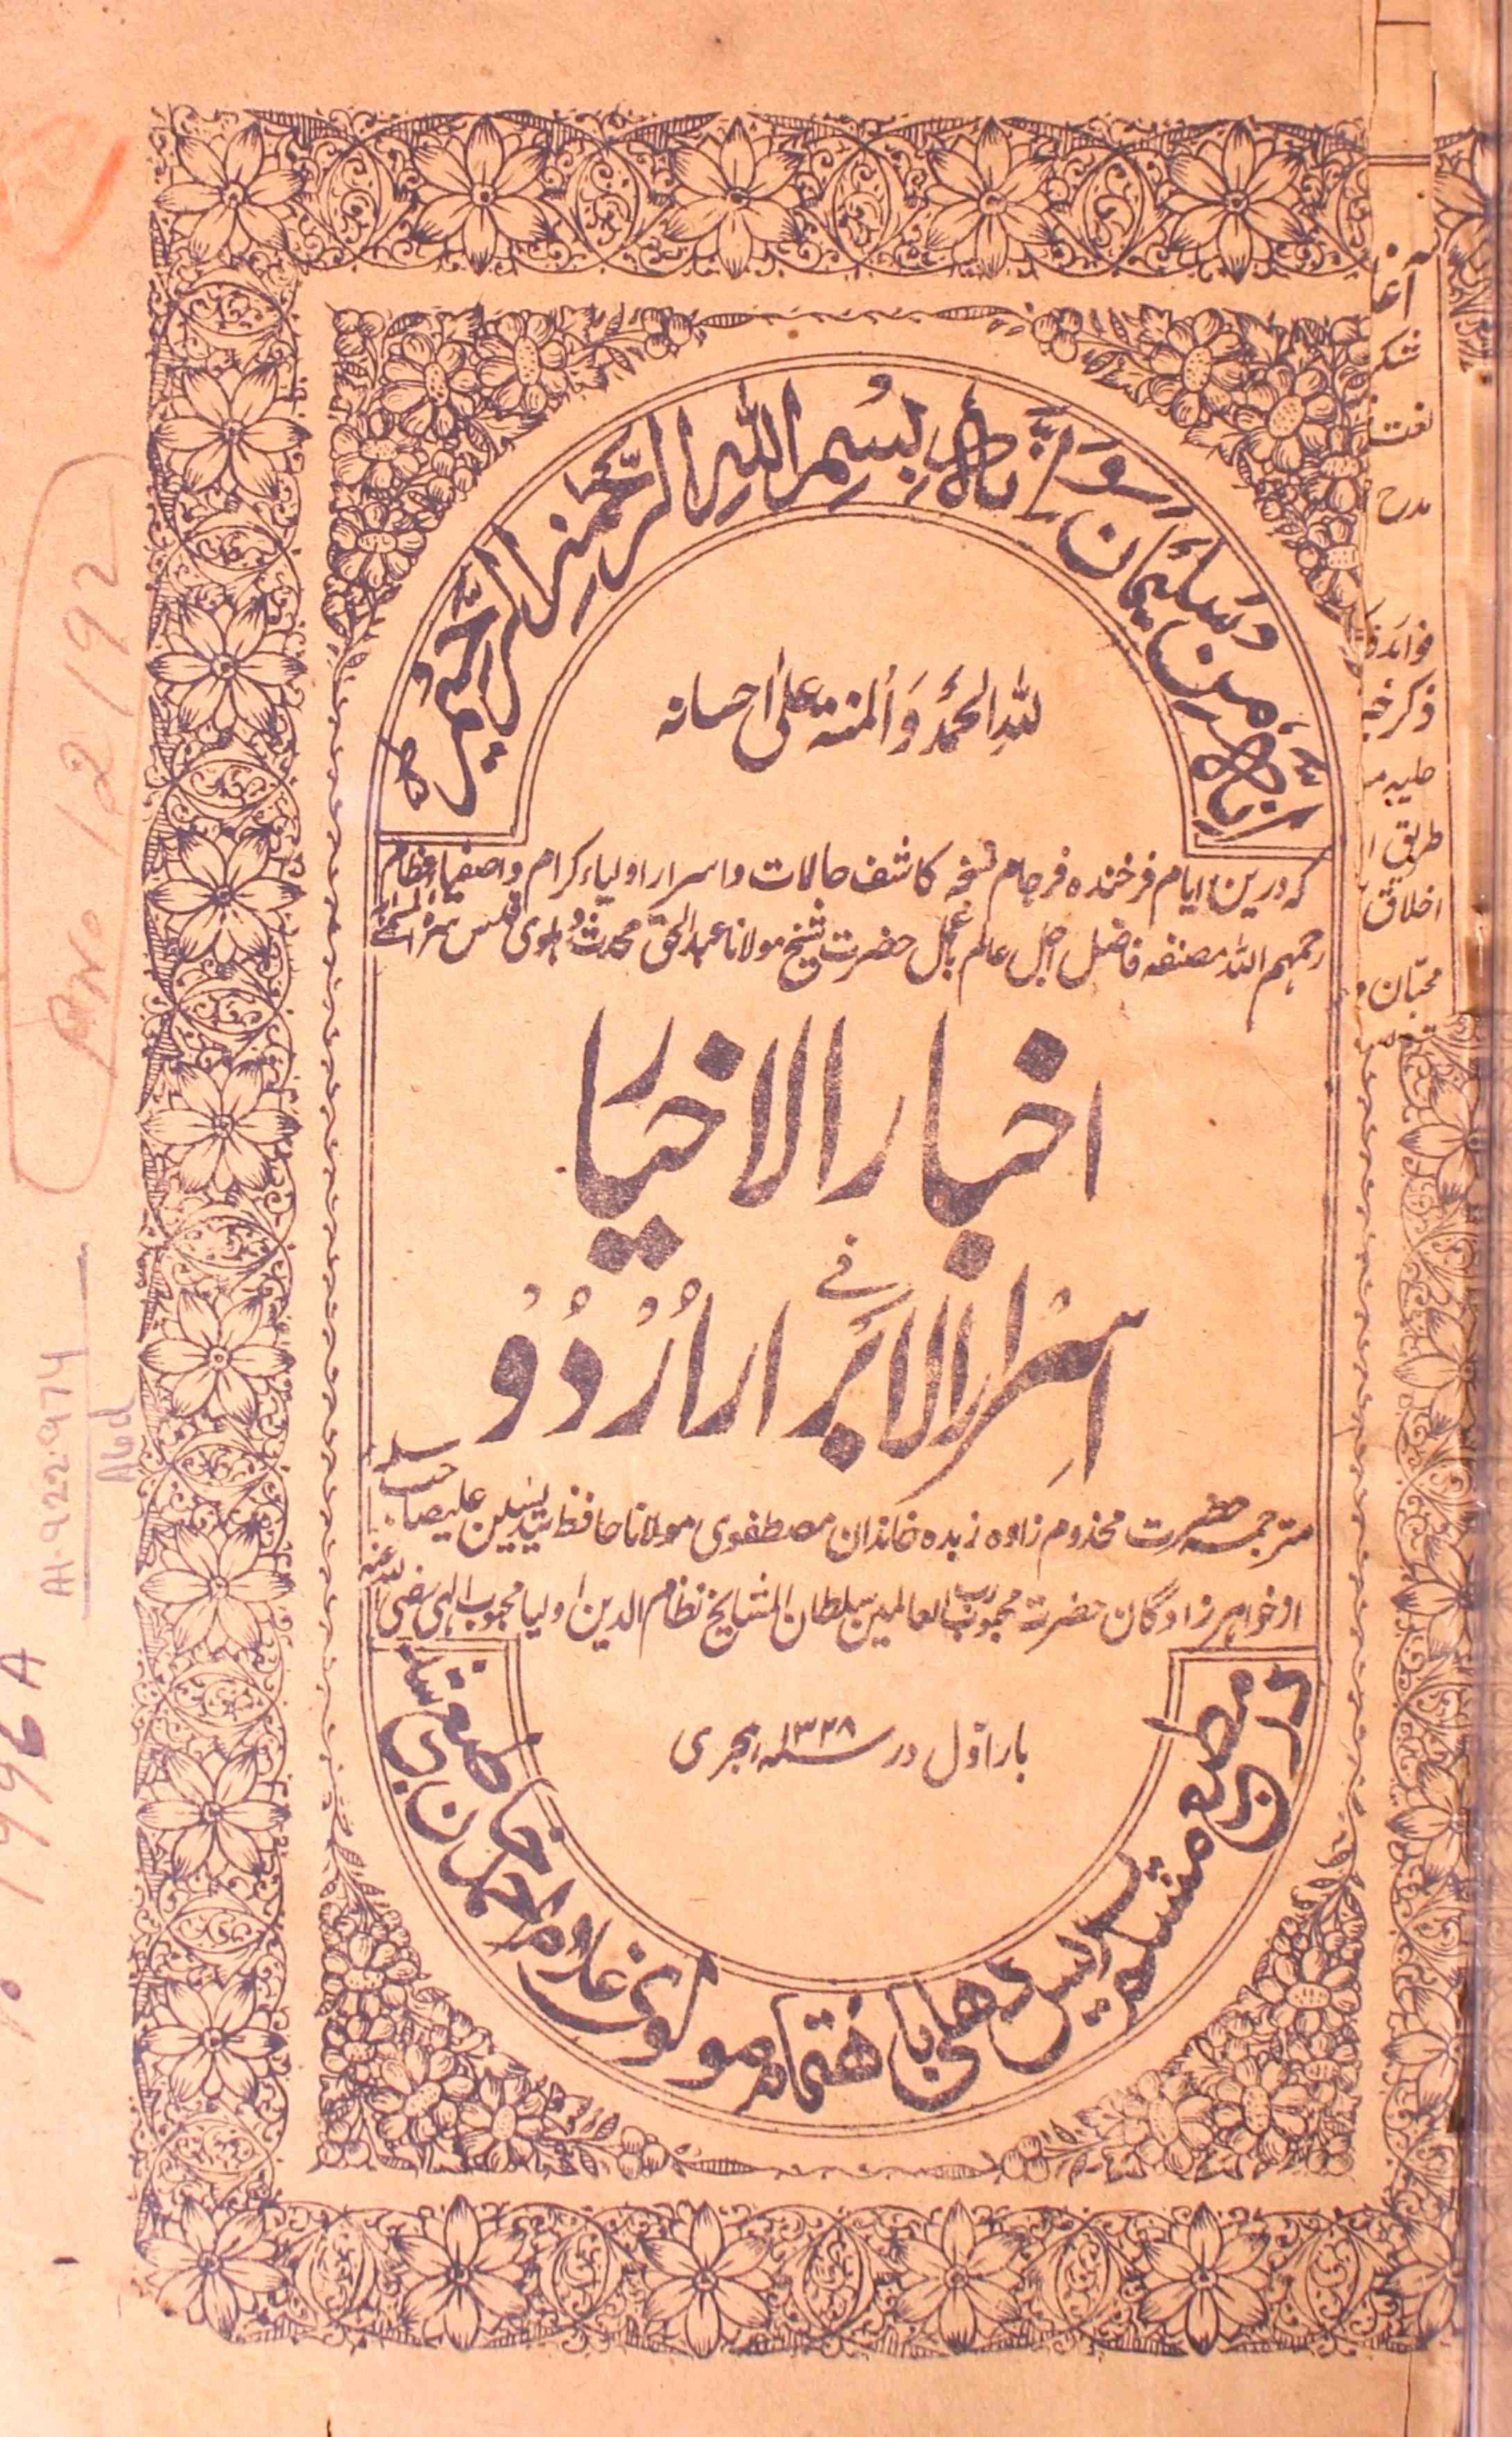 انه من سلیمان و انه بسم الله الرحمن الرحیم
لله الحمد والمنة علی احسانه
که درین ایام فرخنده فرجام نسخه کاشف حالات و اسرار اولیاء کرام و اصفیاء عظام
رحمهم الله مصنفه فاضل اجل عالم باعمل حضرت شیخ مولانا عبدالحق محدث دہلوی قدس سره
اخبار الاخیار
فے
اسرار الابرار اردو
مترجمہ حضرت مخدوم زادہ زبدہ خاندان مصطفوی مولانا حافظ سید یٰسین علی صاحب
از خواہر زادگان حضرت محبوب رب العالمین سلطان المشایخ نظام الدین اولیا محبوب الٰہی رضی اللہ عنہ
بار اوّل در ۱۳۲۸ ہجری
در مطبع مسلم پریس دهلی باهتمام مولوی غلام احمد خان
PNo 12192
A1-922.974
Abd
1996 A
مدح
ذکر
طریق
اخلاق
محبّان و